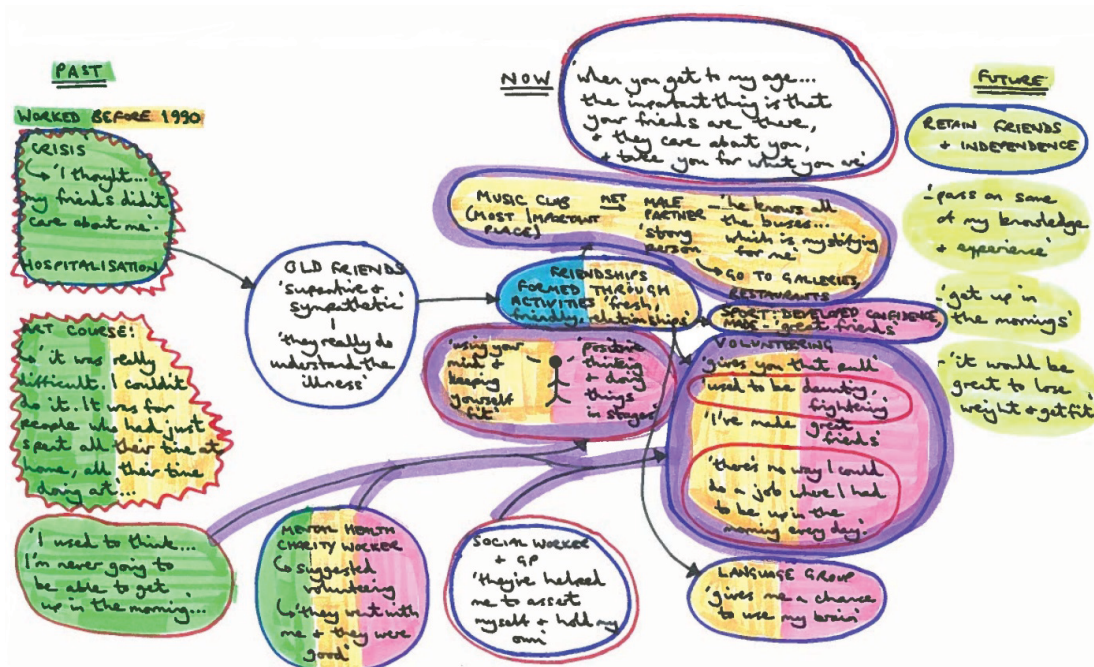 PAST
WORKED BEFORE 1990
CRISIS
'I thought...
my friends didn't
care about me'.
HOSPITALISATION
ART COURSE:
'it was really
difficult. I couldn't
do it. It was for
people who had just
spent all their time at
home, all their time
doing art...
'I used to think...
I'm never going to
be able to get
up in the morning...
OLD FRIENDS
'supportive &
sympathetic'
'they really do
understand the
illness'
MENTAL HEALTH
CHARITY WORKER
suggested
volunteering
'they went with
me & they were
good'
SOCIAL WORKER
& GP
'they've helped
me to assert
myself & hold my
own'
NOW
'when you get to my age...
the important thing is that
your friends are there,
& they care about you,
& take you for what you are'
MUSIC CLUB
(MOST IMPORTANT
PLACE)
MET
MALE
PARTNER
'strong
person
'he knows all
the buses...
which is mystifying
for me'
GO TO GALLERIES,
RESTAURANTS
FRIENDSHIPS
FORMED THROUGH
ACTIVITIES 'fresh,
friendly, relationships'
SPORT: DEVELOPED CONFIDENCE,
MADE 'great friends'
'using your
mind &
keeping
yourself
fit'
'positive
thinking
& doing
things
in stages'
VOLUNTEERING
'gives you that pull'
'used to be daunting,
frightening'
'I've made great
friends'
'there's no way I could
do a job where I had
to be up in the
morning every day'.
LANGUAGE GROUP
'gives me a chance
to use my brain'
FUTURE
RETAIN FRIENDS
& INDEPENDENCE
-'pass on some
of my knowledge
& experience'
-'get up in
the mornings'
-'it would be
great to lose
weight & get fit'